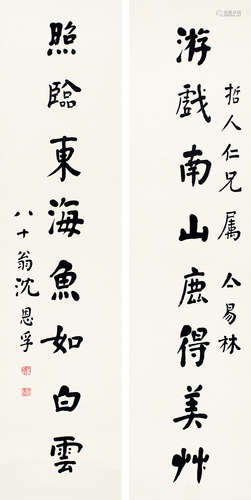 哲人仁兄属 仝易林
游戲南山鹿得美艸
照臨東海魚如白雲
八十翁沈恩孚